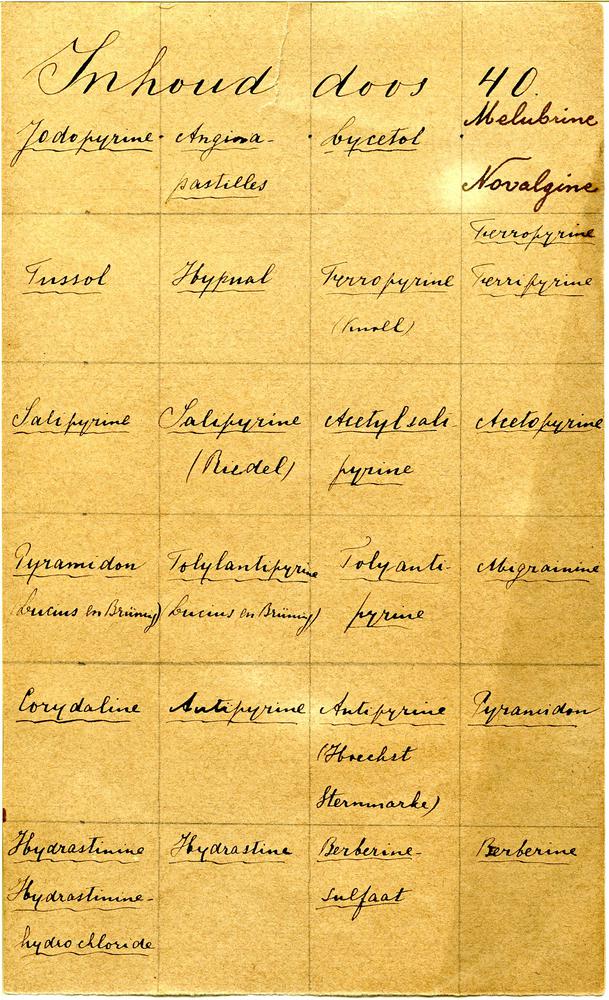 Inhoud doos 40.
Jodopyrine. Angina- . Lycetol . Melubrine
pastilles Novalgine
Ferropyrine
Tussol Hypnal Ferropyrine Ferripyrine
(Knoll)
Salipyrine Salipyrine Acetylsali- Acetopyrine
(Riedel) pyrine
Pyramidon Tolylantipyrine Tolyanti- Migrainine
(Lucius en Brüning) Lucius en Brüning) pyrine
Corydaline Antipyrine Antipyrine Pyramidon
(Hoechst
Sternmarke)
Hydrastinine Hydrastine Berberine- Berberine
Hydrastinine- sulfaat
hydrochloride